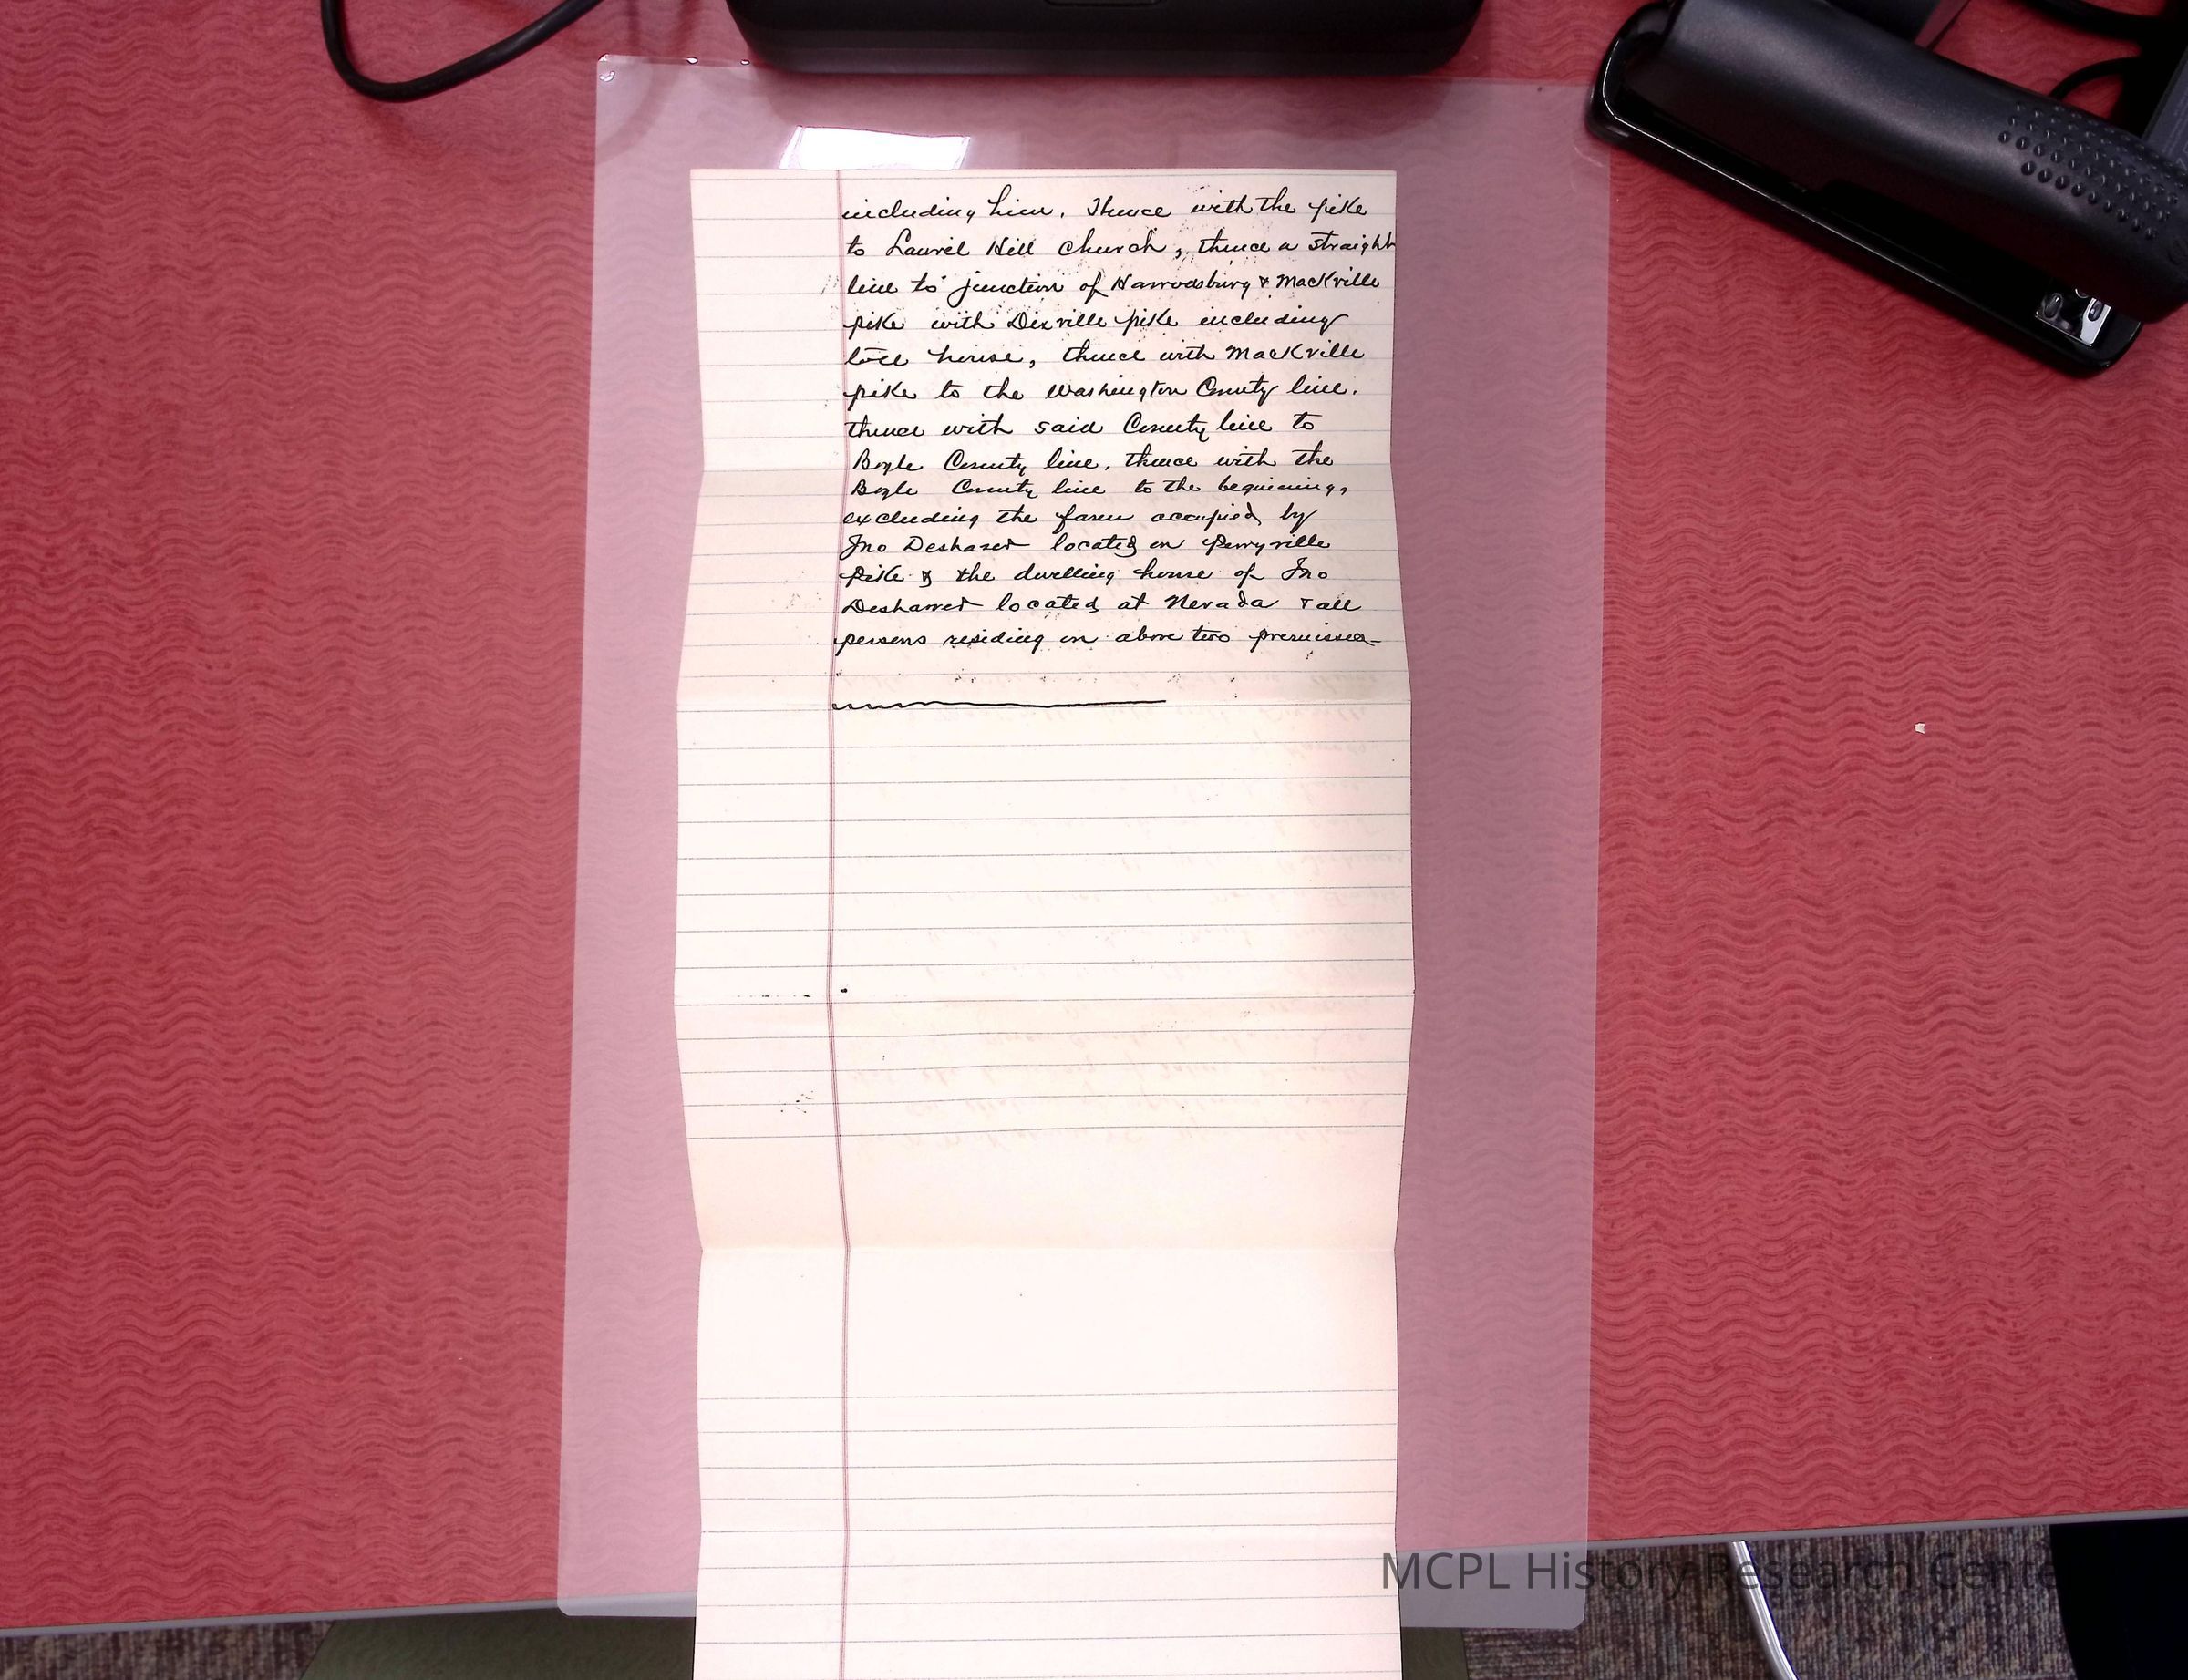 including him. Thence with the pike
to Laurel Hill Church, thence a straight
line to junction of Harrodsburg & Mackville
pike with Dixville pike including
toll house, thence with Mackville
pike to the Washington County line.
thence with said County line to
Boyle County line, thence with the
Boyle County line to the beginning,
excluding the farm occupied by
Jno located on Perryville
Pike & the dwelling house of Jno
located at Nevada & all
persons residing on above two premises
MCPL History Research Cente